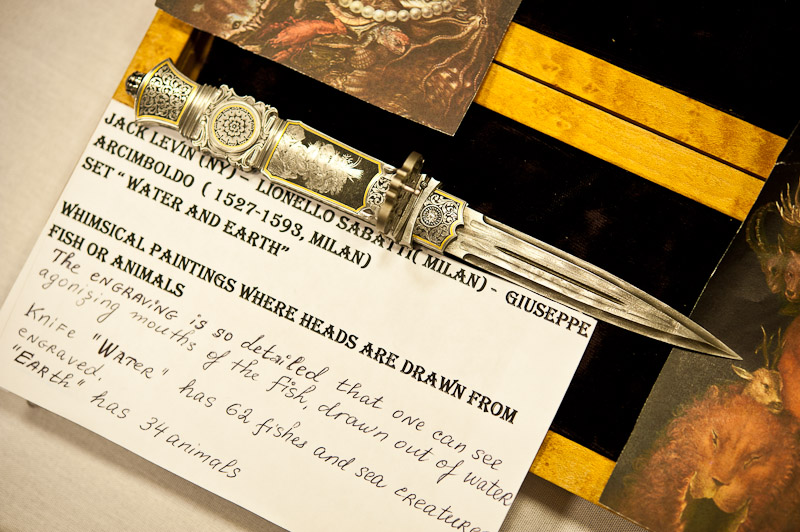 JACK LEVIN (NY) - LIONELLO SABATTI( MILAN) - GIUSEPPE
ARCIMBOLDO ( 1527-1593, MILAN)
SET “ WATER AND EARTH”
WHIMSICAL PAINTINGS WHERE HEADS ARE DRAWN FROM
FISH OR ANIMALS
The ENGRAVING is so detailed that one can see
agonising mouths of the fish, drawn out of water
Knife "WATER" has 62 fishes and sea creatures
engraved.
"EARTH" has 34 animals